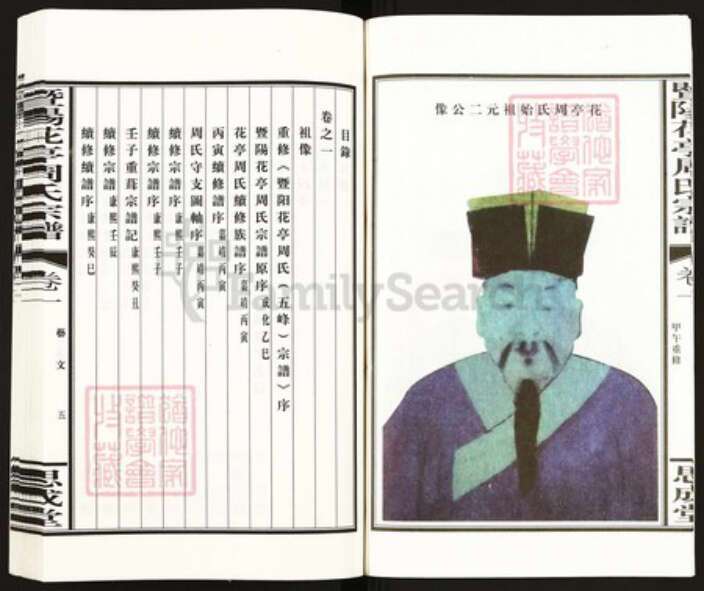 花亭周氏始祖元二公像
暨陽花亭周氏宗譜
卷一
甲午重修
思成堂
目錄
卷之一
祖像
重修《暨阳花亭周氏(五峰)宗譜》序
暨陽花亭周氏宗譜原序 成化乙巳
花亭周氏續修族譜序 嘉靖丙寅
丙寅續修譜序 嘉靖丙寅
周氏守支圖軸序 嘉靖丙寅
續修譜序 康熙壬子
續修譜序 康熙壬子
壬子重葺宗譜記 康熙癸丑
續修宗譜 康熙壬辰
續修續譜序 康熙癸巳
暨陽花亭周氏宗譜
卷一
藝文
五
思成堂
FamilySearch